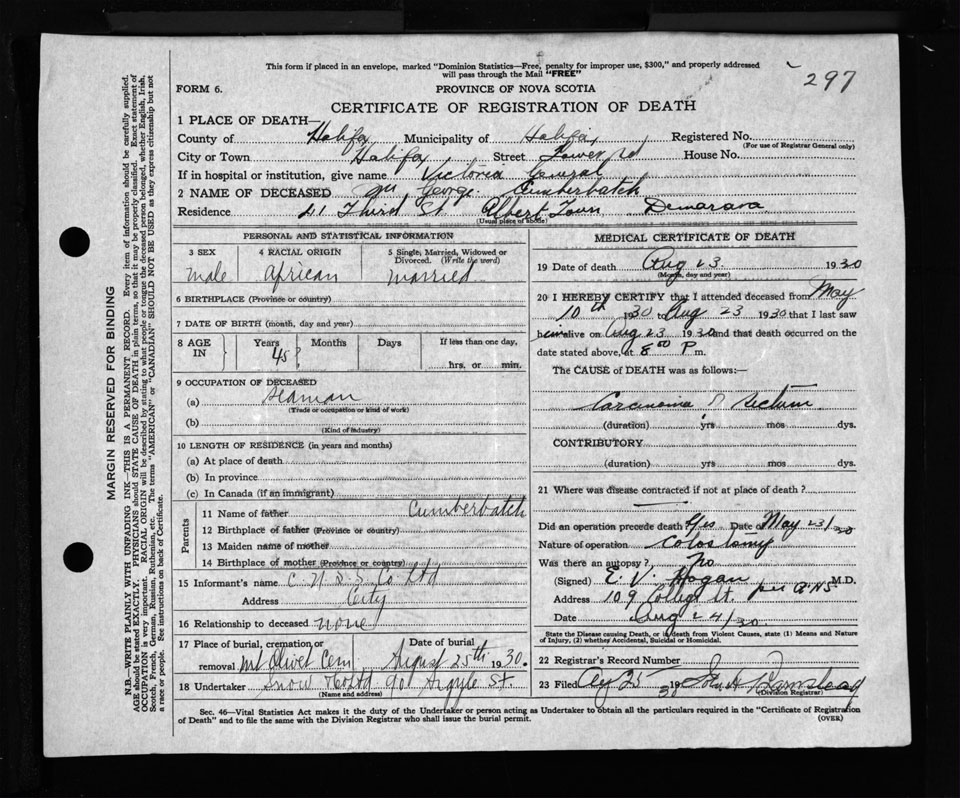 This form if placed in an envelope, marked "Dominion Statistics—Free, penalty for improper use, $300," and properly addressed
will pass through the Mail "FREE"
297
FORM 6.
PROVINCE OF NOVA SCOTIA
CERTIFICATE OF REGISTRATION OF DEATH
1 PLACE OF DEATH—
County of Halifax Municipality of Halifax Registered No.
(For use of Registrar General only)
City or Town Halifax, Street Tower Rd House No.
If in hospital or institution, give name Victoria General
2 NAME OF DECEASED George Cumberbatch
Residence 21 Third St Albert Town Demarara
(Usual place of abode)
PERSONAL AND STATISTICAL INFORMATION
3 SEX
male
4 RACIAL ORIGIN
African
5 Single, Married, Widowed or Divorced. (Write the word)
married
6 BIRTHPLACE (Province or country)
7 DATE OF BIRTH (month, day and year)
8 AGE IN
Years Months Days If less than one day,
45? hrs. or min.
9 OCCUPATION OF DECEASED
(a) Seaman
(Trade or occupation or kind of work)
(b)
(Kind of industry)
10 LENGTH OF RESIDENCE (in years and months)
(a) At place of death
(b) In province
(c) In Canada (if an immigrant)
Parents
11 Name of father Cumberbatch
12 Birthplace of father (Province or country)
13 Maiden name of mother
14 Birthplace of mother (Province or country)
15 Informant's name C. N. S. S. Co Ltd
Address City
16 Relationship to deceased none
17 Place of burial, cremation or removal Mt Olivet Cem
Date of burial August 25th 1930.
18 Undertaker Snow & Co Ltd 90 Argyle St
(Name and address)
MEDICAL CERTIFICATE OF DEATH
19 Date of death Aug 23. 1930
(Month, day and year)
20 I HEREBY CERTIFY that I attended deceased from May
10th 1930 to Aug 23 1930 that I last saw
him alive on Aug 23 1930 and that death occurred on
date stated above, at 8 00 P m.
The CAUSE of DEATH was as follows:—
Carcinoma of Rectum
(duration) yrs mos dys.
CONTRIBUTORY
(duration) yrs mos dys.
21 Where was disease contracted if not at place of death?
Did an operation precede death Yes Date May 23/30
Nature of operation Colostomy
Was there an autopsy? no
(Signed) E. V. Hogan M.D.
Address 109 College St. per
Date Aug 24/30.
State the Disease causing Death, or in death from Violent Causes, state (1) Means and Nature of Injury, (2) whether Accidental, Suicidal or Homicidal.
22 Registrar's Record Number
23 Filed Aug 25 1930 John A
(Division Registrar)
Sec. 46—Vital Statistics Act makes it the duty of the Undertaker or person acting as Undertaker to obtain all the particulars required in the "Certificate of Registration
of Death" and to file the same with the Division Registrar who shall issue the burial permit.
(OVER)
MARGIN RESERVED FOR BINDING
N.B.—WRITE PLAINLY WITH UNFADING INK—THIS IS A PERMANENT RECORD. Every item of information should be carefully supplied.
AGE should be stated EXACTLY. PHYSICIANS should STATE CAUSE OF DEATH in plain terms, so that it may be properly classified. Exact statement of
OCCUPATION is very important. RACIAL ORIGIN will be described by stating to what people or tongue the deceased person belonged, whether English, Irish,
Scotch, French, German, Russian, Ruthenian, etc. The terms "AMERICAN" or "CANADIAN" SHOULD NOT BE USED as they express citizenship but not
a race or people. See instructions on back of Certificate.